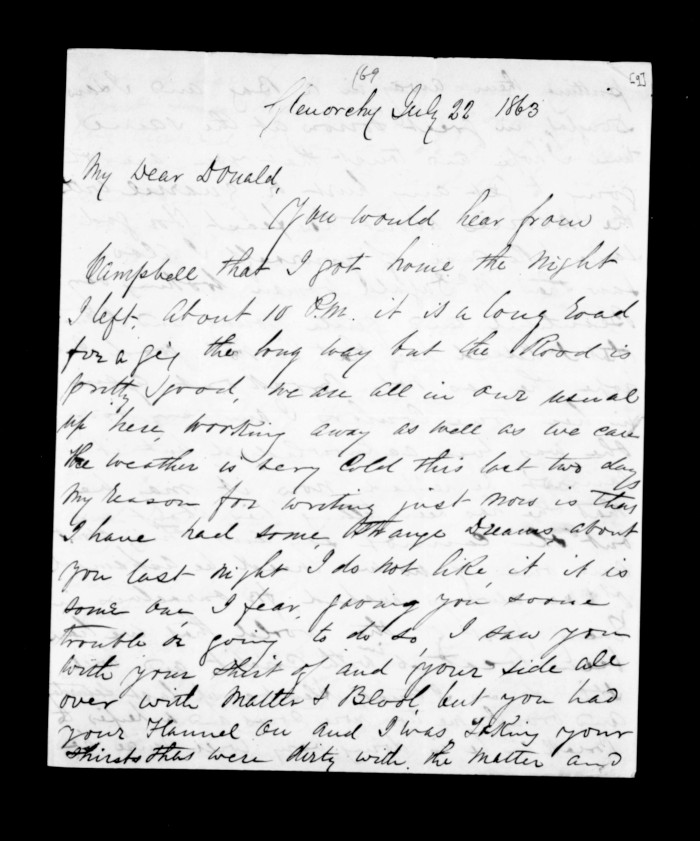 169
[9]
Glenorchy July 22 1863
My Dear Donald,
You would hear from
Campbell that I got home the night
I left, about 10 P.M. it is a long Road
for a gig the long way but the Road is
pretty good, we are all in our usual
up here, working away as well as we can
the weather is very Cold this last two days
My Reason for writing just now is that
I have had some strange Dreams about
you last night I do not like it it is
some one I fear, you some
trouble or going to do so, I saw you
with your shirt of and your side all
over with Matter & Blood, but you had
your Flannel On and I was Taking your
shirts that were dirty with the Matter and